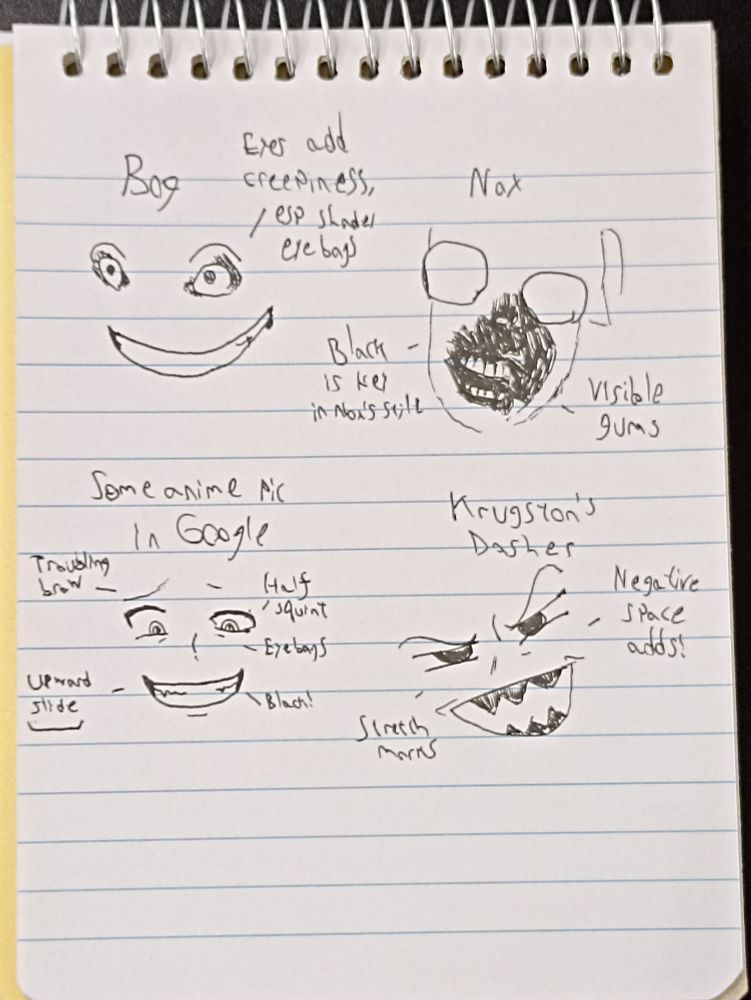 Bog
Eyes add
creepiness,
esp shaded
eyebags
Nox
Black
is key
in Nox's style
Visible
gums
Some anime pic
in Google
Troubling
brow
Half
squint
Eyebags
Upward
slide
Black!
Krugston's
Dasher
Negative
space
adds!
Stretch
marks